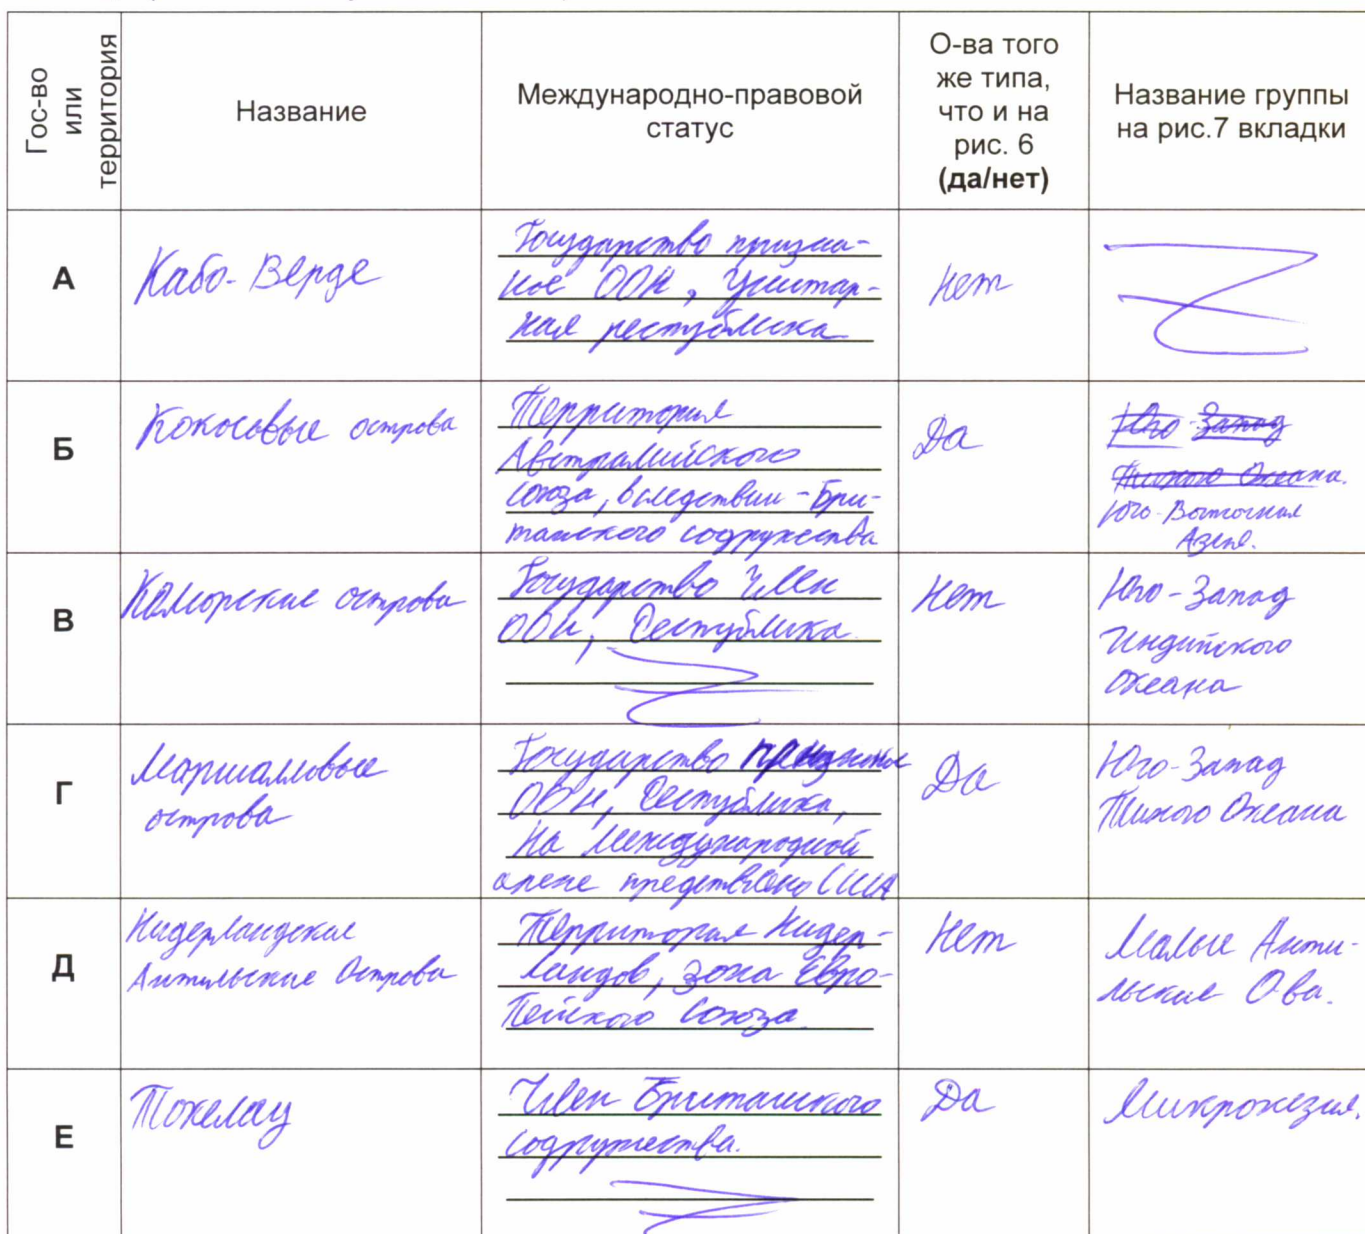 Гос-во
или
территория
Название
Международно-правовой
статус
О-ва того
же типа,
что и на
рис. 6
(да/нет)
Название группы
на рис.7 вкладки
А
Кабо-Верде
Государство призна-
ное ООН, Унитар-
ная республика
Нет
Б
Кокосовые острова
Территория
Австралийского
союза, вследствии - Бри-
танского содружества
Да
Юго-Запад
Тихого Океана.
Юго-Восточная
Азия.
В
Коморские острова
Государство член
ООН, Республика
Нет
Юго-Запад
Индийского
океана
Г
Маршалловые
острова
Государство
ООН, Республика,
На международной
арене предствлено США
Да
Юго-Запад
Тихого Океана
Д
Нидерландские
Антильские Острова
Территория Нидер-
ландов, зона Евро-
пейского Союза.
Нет
Малые Анти-
льские О-ва.
Е
Токелау
Член Британского
содружества.
Да
Микронезия.